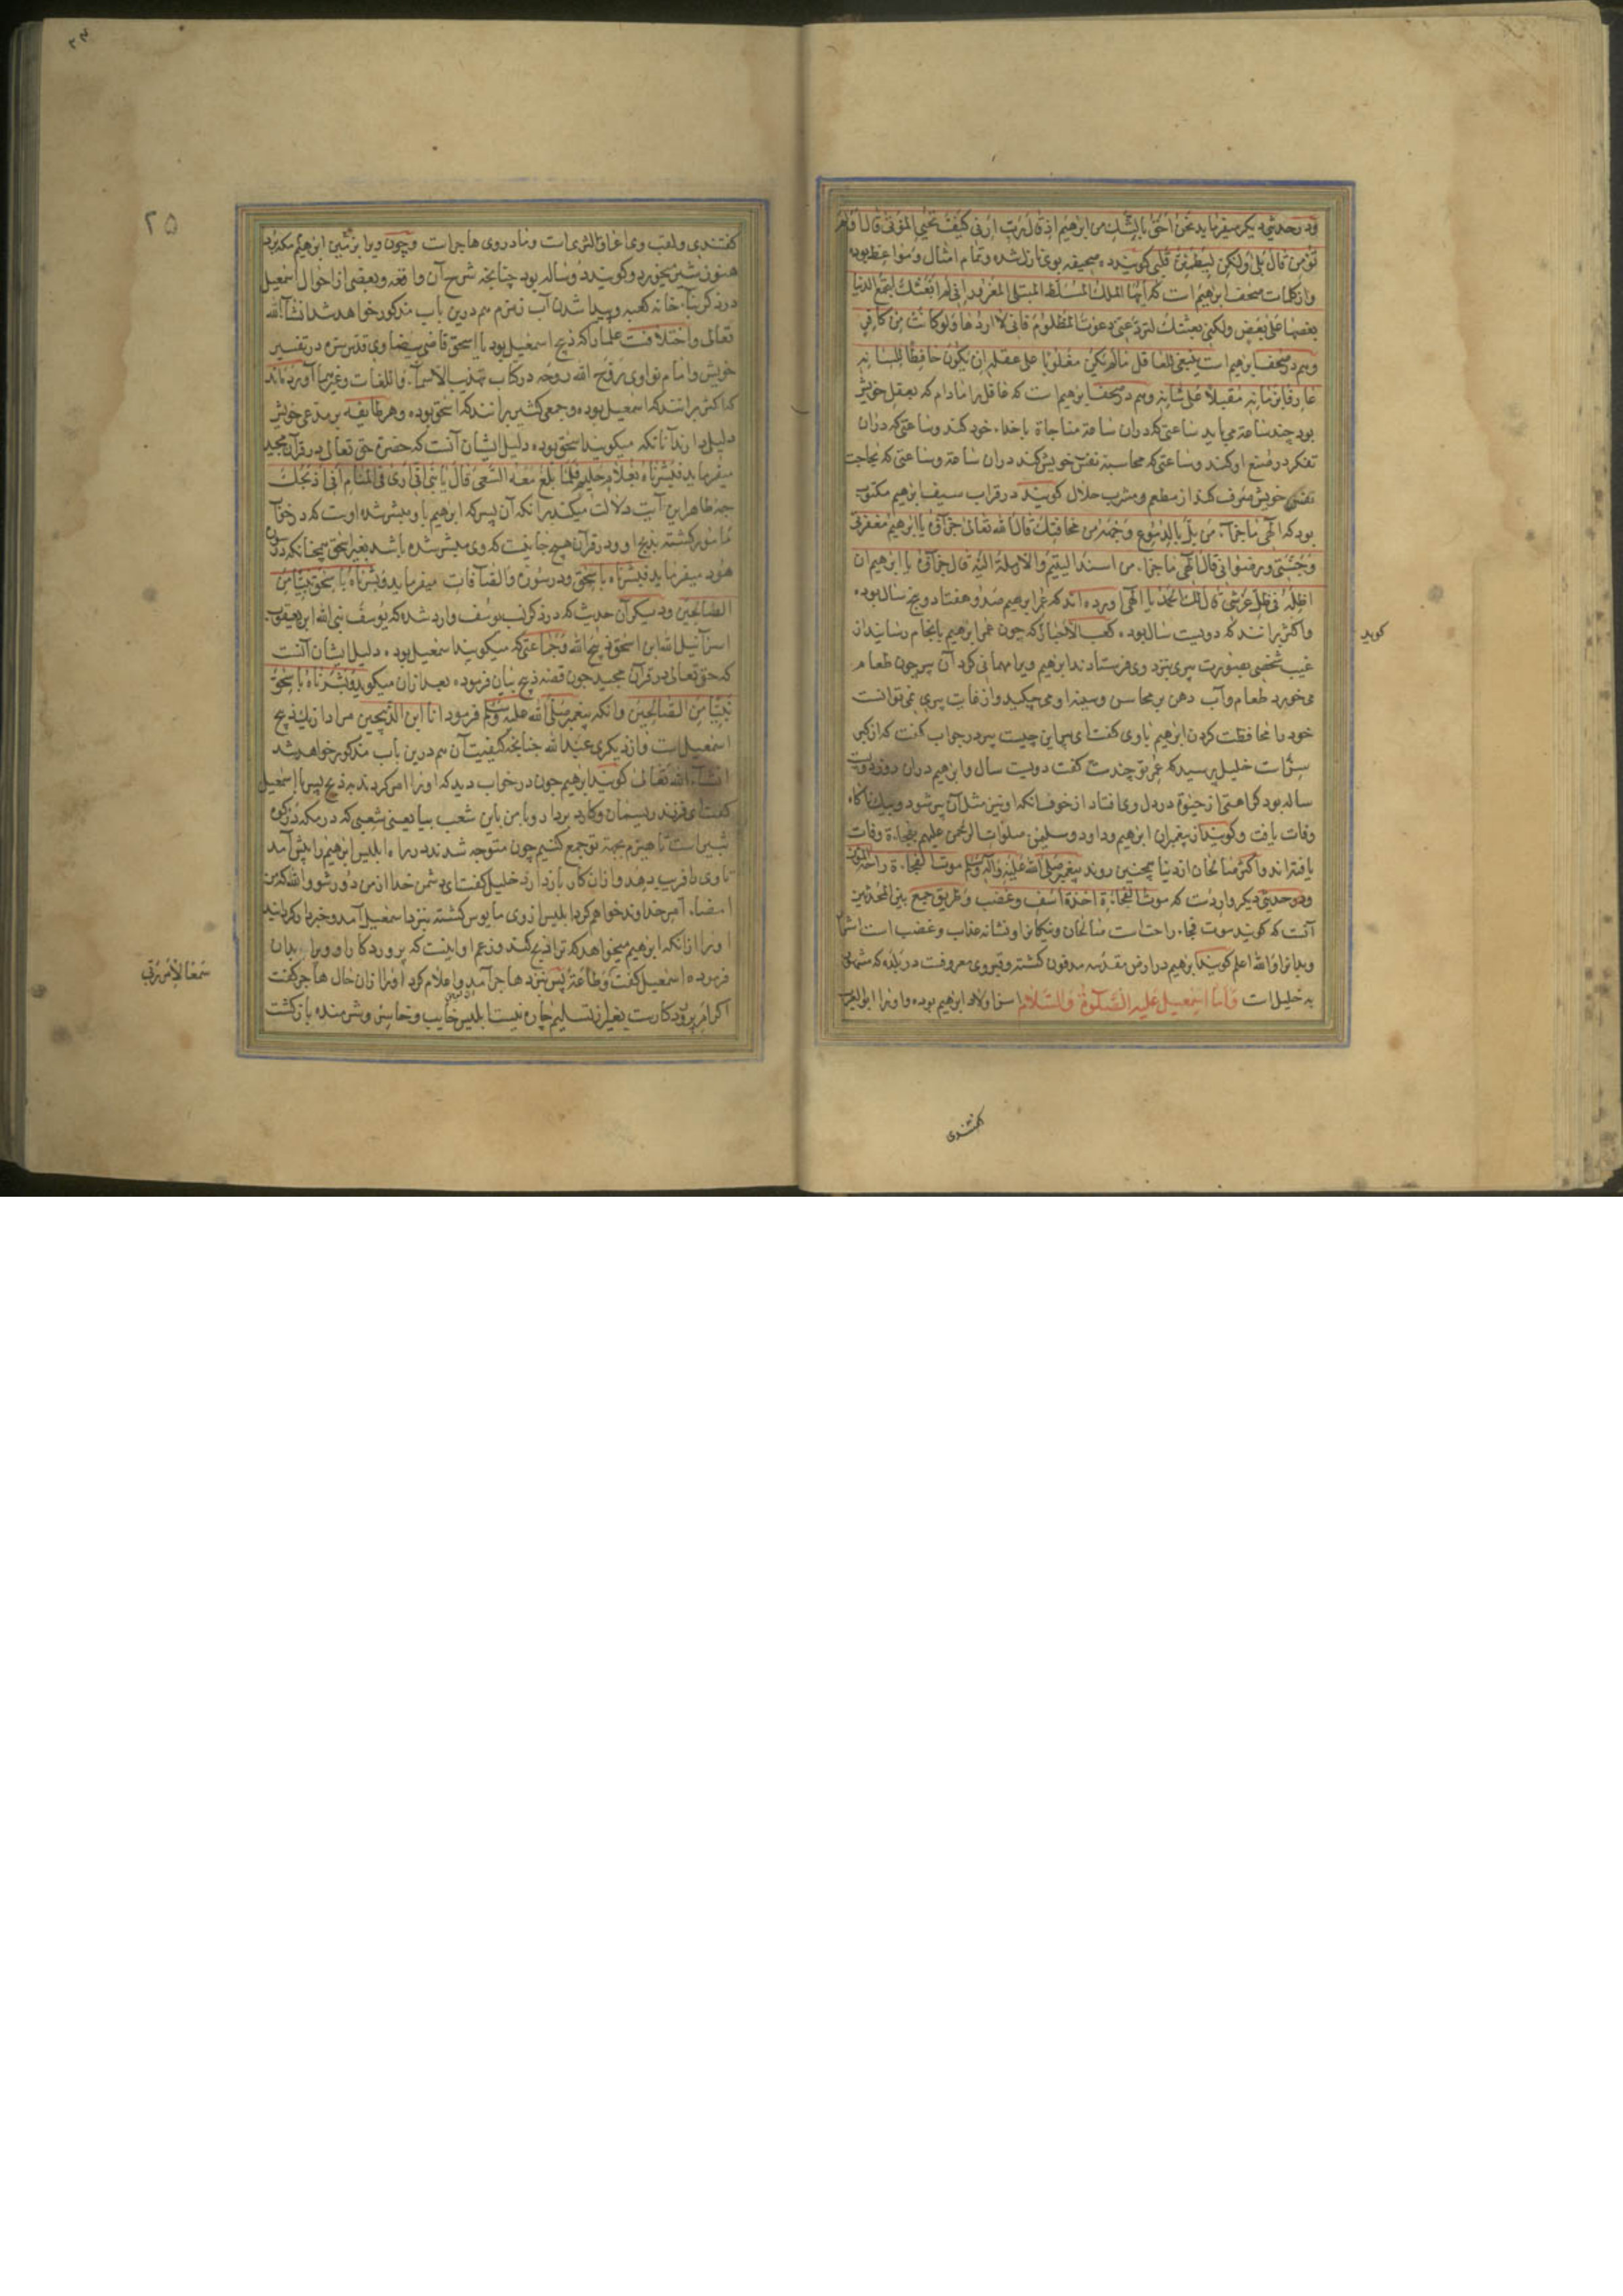 ودر حدیثی دیگر میفرماید نحن احق بالشک من ابرهیم اذ قال رب ارنی کیف تحیی الموتی قال اولم
تؤمن قال بلی ولکن لیطمئن قلبی کویند ده صحیفه بوی نازل شده وتمام امثال ومواعظ بوده
وازکلمات صحف ابرهیم است که ایها الملک المسلط المبتلی المغرور انی لم ابعثک لتجمع الدنیا
بعضها علی بعض ولکنی بعثتک لترد عنی دعوة المظلوم فانی لا اردها ولو کانت من کافر
وهم در صحف ابرهیم است ینبغی للعاقل مالم یکن مغلوبا علی عقله ان یکون حافظا للسانه
عارفا بزمانه مقبلا علی شانه وهم در صحف ابرهیم است که عاقل را مادام که بعقل خویش
بود چند ساعة می باید ساعتی که دران ساعة مناجاة با خداء خود کند وساعتی که دران
تفکر در صنع او کند وساعتی که محاسبة نفس خویش کند دران ساعة وساعتی که بحاجت
نفس خویش صرف کند از مطعم ومشرب حلال کویند در قراب سیف ابرهیم مکتوب
بود که الهی ما جزآء من بل بالدموع وجهه من مخافتک قال الله تعالی جزآؤه یا ابرهیم مغفرتی
وجنتی ورضوانی قال الهی ما جزاء من اسند الیتیم والارملة الیه قال جزآؤه یا ابرهیم ان
اظله فی ظل عرشی قال لک الحمد یا الهی آورده اند که عمر ابرهیم صد وهفتاد وپنج سال بوده
واکثر برانند که دویست سال بوده کعب الاحبار که چون عمر ابرهیم بانجام رسانید از
کوید
غیب شخصی بصورت پیری بنزد وی فرستادند ابرهیم ویرا مهمانی کرد آن پیر چون طعام
می خورد طعام وآب دهن بر محاسن وسینه او می چکید واز غایت پیری نمی توانست
خود را محافظت کردن ابرهیم با وی کفت ای پیر این چیست پیر در جواب کفت که از کبر
سنّ است خلیل پرسید که عمر تو چندست کفت دویست سال وابرهیم دران روز دویست
ساله بود کراهتی از حیوة در دل وی افتاد از خوف آنکه او نیز مثل آن پیر شود وبیک ناکاه
وفات یافت وکویند از پیغمبران ابرهیم وداود وسلیمن صلوات الرحمن علیهم بفجاءة وفات
یافته اند واکثر صالحان از دنیا همچنین روند پیغمبر صلی الله علیه وآله وسلم موت الفجاءة راحة المؤمن
ودر حدیثی دیکر واردست که موت الفجاءة اخذة اسف وغضب وطریق جمع بین الحدیثین
آنست که کویند موت فجاء راحت است صالحان ونیکانرا ونشانه عذاب وغضب است اشرار
وبدانرا والله اعلم کویند ابرهیم در ارض مقدسه مدفون کشته وقبر وی معروفست در بلده که مسمی
به خلیل است فاما اسمعیل علیه الصلوة والسلام اسن اولاد ابرهیم بوده واورا ابو العرب
کفتندی
۲۴
۲۵
کفتندی ولقب وی اعراق الثری است ومادر وی هاجر است وچون ویرا بزمین ابرهیم مکه برد
هنوز شیر میخورد وکویند دوساله بود چنانچه شرح آن واقعه وبعضی از احوال اسمعیل
در ذکر بناء خانه کعبه وپیدا شدن آب زمزم هم درین باب مذکور خواهد شد انشآ الله
تعالی واختلافست علما را که ذبیح اسمعیل بود یا اسحق قاضی بیضاوی قدس سره در تفسیر
خویش وامام نواوی روح الله روحه در کتاب تهذیب الاسمآء واللغات وغیرهما آورده اند
که اکثر برانند که اسمعیل بوده وجمعی کثیر برانند که اسحق بوده وهر طایفه بر مدعی خویش
دلیلی دارند آنانکه میکویند اسحق بوده دلیل ایشان آنست که حضرة حق تعالی در قرآن مجید
میفرماید فبشرناه بغلام حلیم فلما بلغ معه السعی قال یا بنی انی اری فی المنام انی اذبحک
چه ظاهر این آیت دلالت میکند بر آنکه آن پسر که ابرهیم باو مبشر شده اوست که در خواب
مامور کشته بذبح او ودر قرآن هیچ جا نیست که وی مبشر شده باشد بغیر اسحق همچنانکه در سوره
هود میفرماید فبشرناه باسحق ودر سوره والصآفات میفرماید وبشرناه باسحق نبیا من
الصالحین ودیکر آن حدیث که در ذکر نسب یوسف وارد شده که یوسف نبی الله ابن یعقوب
اسرآئیل الله ابن اسحق ذبیح الله وجماعتی که میکویند اسمعیل بوده دلیل ایشان آنست
که حق تعالی در قرآن مجید چون قصه ذبح بیان فرموده بعد ازان میکوید وبشرناه باسحق
نبیا من الصالحین وانکه پیغمبر صلی الله علیه وسلم فرمود انا ابن الذبیحین مراد از یک ذبیح
اسمعیل است واز دیکری عبد الله چنانچه کیفیت آن هم درین باب مذکور خواهد شد
انشآء الله تعالی کویند ابرهیم چون در خواب دید که اورا امر کردند به ذبح پسر با اسمعیل
کفت ای فرزند ریسمان وکارد بردار وبا من باین شعب بیا یعنی شعبی که در مکه در کوه
ثبیر است تا هیزم بجهة تو جمع کنیم چون متوجه شدند در راه ابلیس ابرهیم را پیش آمد
تا وی را فریب دهد وازان کار باز دارد خلیل کفت ای دشمن خدا از من دور شو والله که من
امضاء امر خداوند خواهم کرد ابلیس از وی مایوس کشته بنزد اسمعیل آمد وخبر دار کردانید
اورا ازانکه ابرهیم میخواهد که ترا ذبح کند وزعم او اینست که پرورد کار او ویرا بدان
فرموده اسمعیل کفت وطاعة پس بنزد هاجر آمد واعلام کرد اورا ازان حال هاجر کفت
سمعا لامر ربی
اکر امر پرورد کارست بغیر از تسلیم چاره نیست ابلیس خایب وخاسر وشرمنده باز کشت